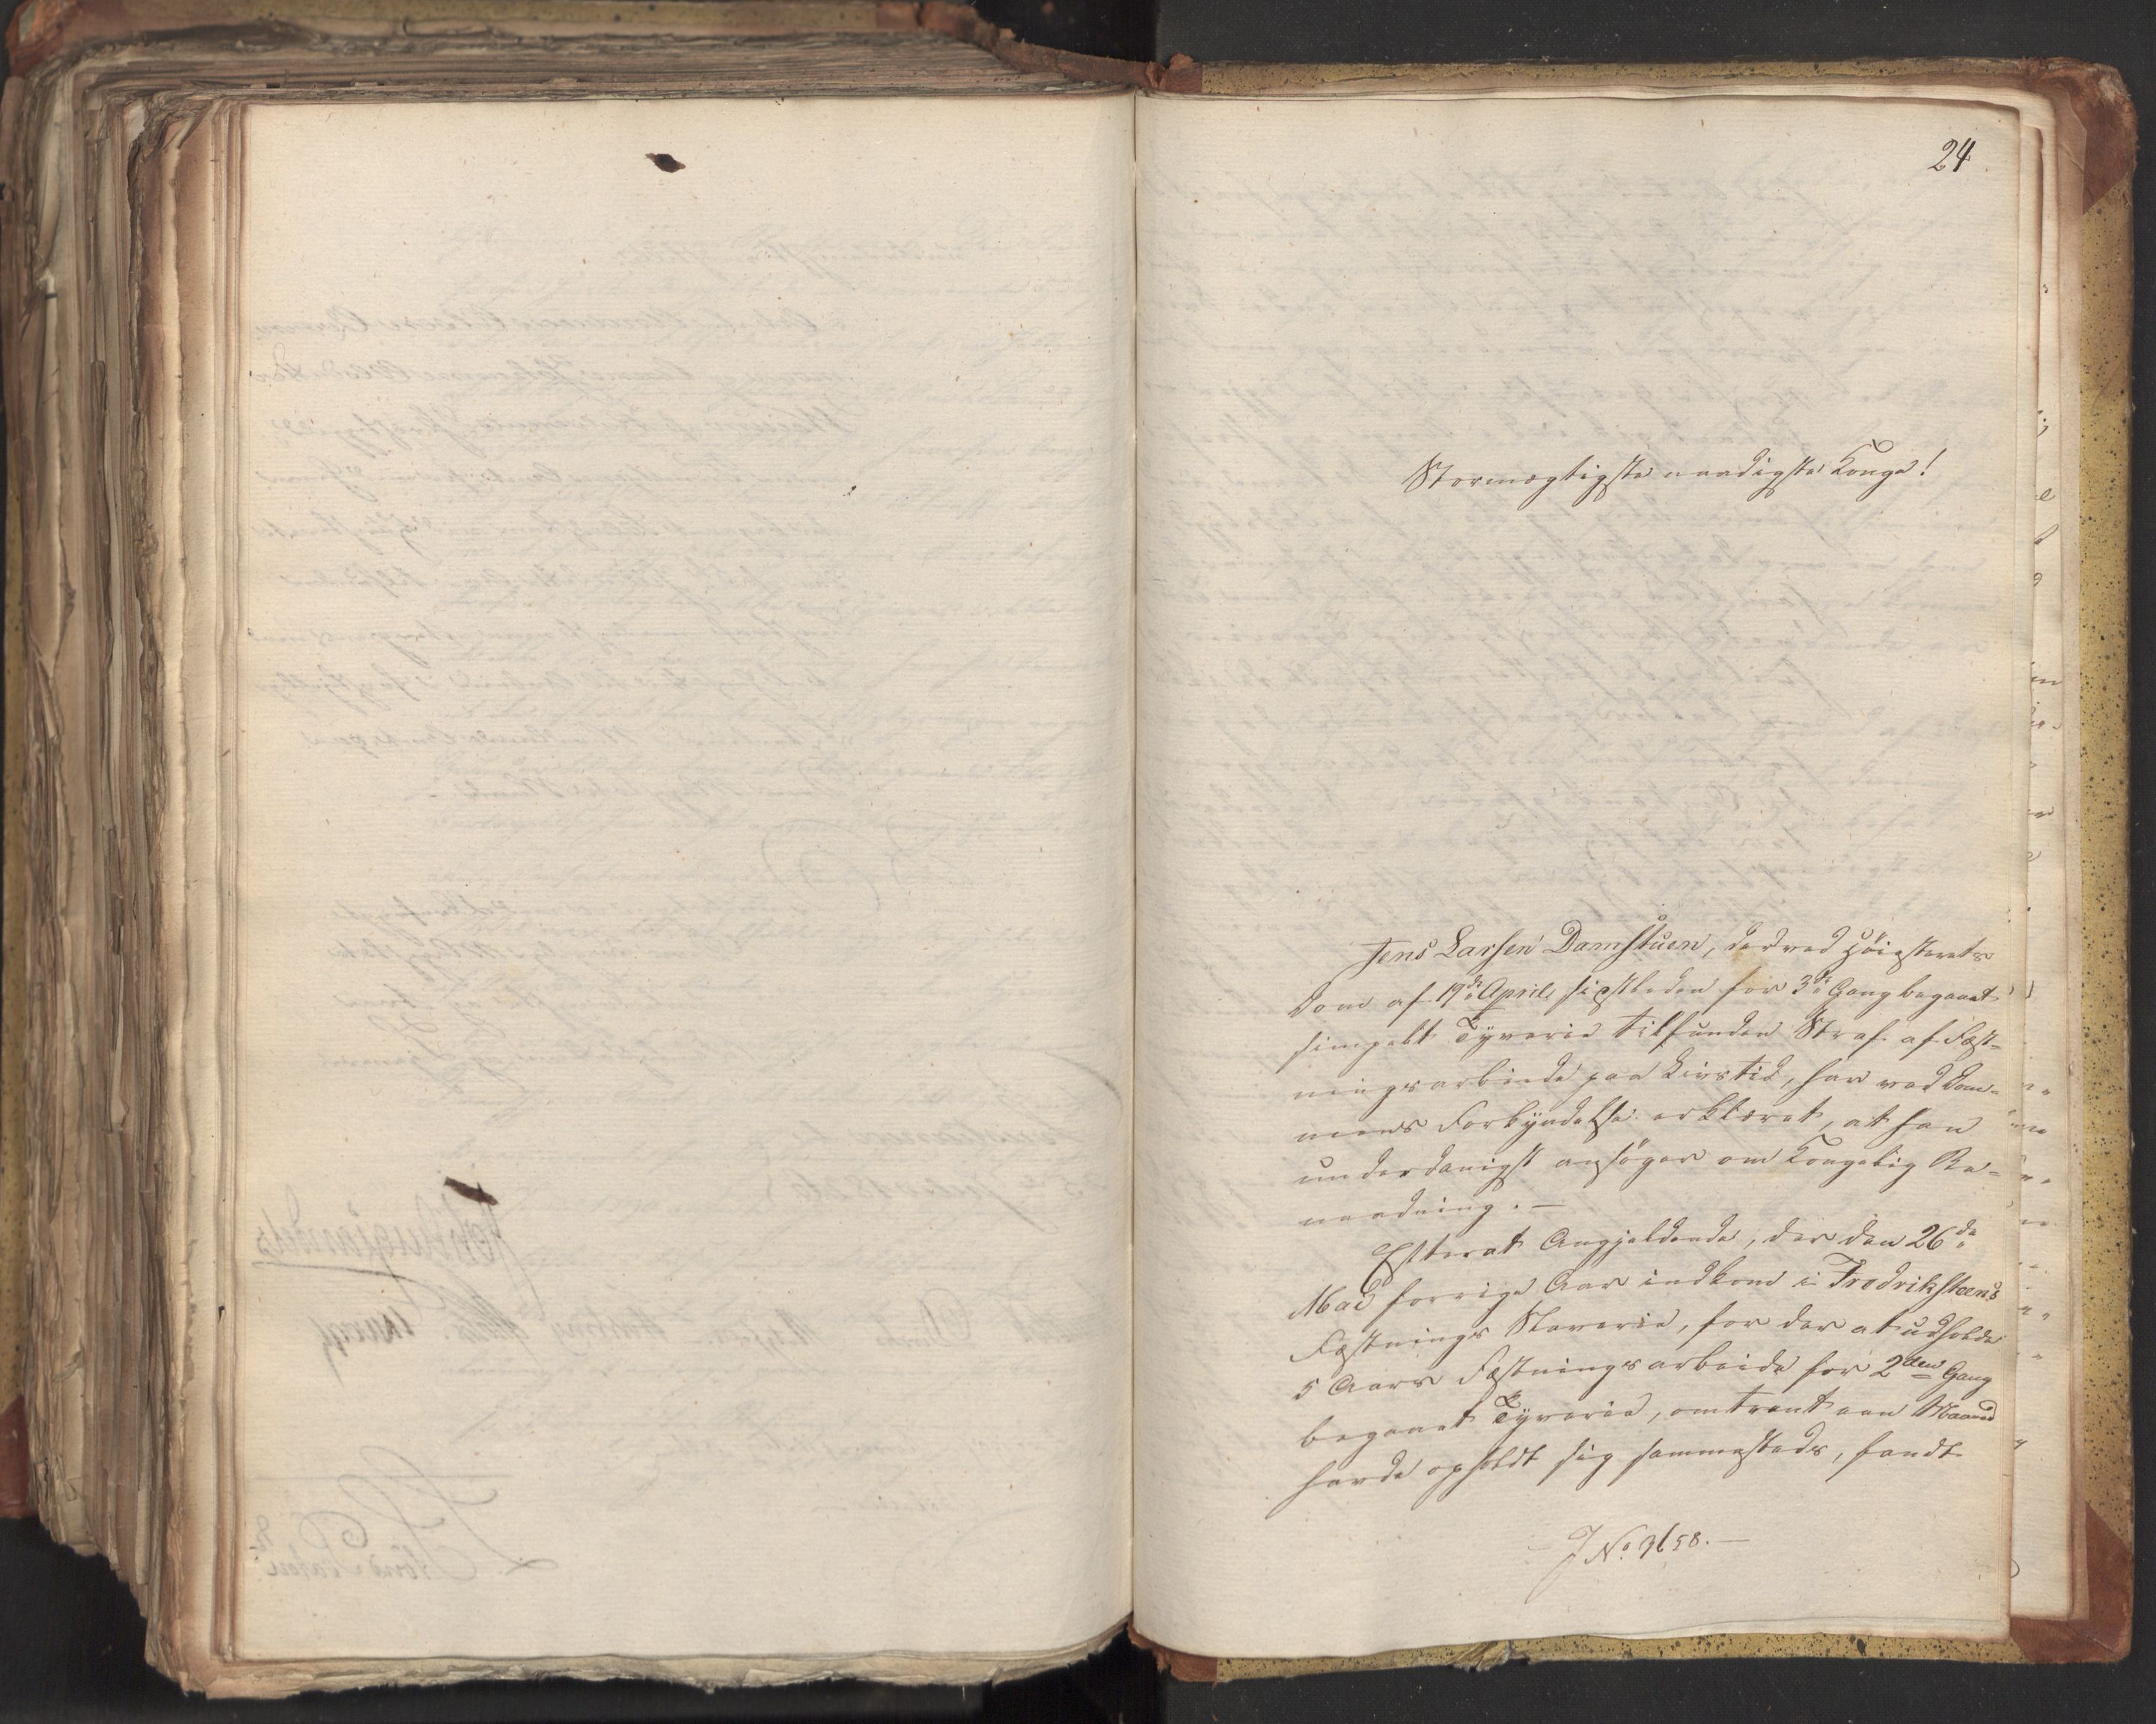 24
Stormægtigste naadigste Konge!
Jens Larsen Damstuen, der ved Höiesterets
Dom af 19de April sistleden for 3die Gang begaaet
simpelt Tyverie tilfunden Straf af Fæst-
ningsarbeide paa Livstid, har ved Dom-
mens Forkyndelse erklæret, at han
underdanigst ansöger om Kongelig Be-
naadning. —
Efterat Angjeldende, der den 26de
Mai forrige Aar indkom i Fredriksteens
Fæstnings Slaverie, for der at udholde
5 Aars Fæstningsarbeide for 2den Gang
begaaet Tyverie, omtrent een Maaned
havde opholdt sig sammesteds, fandt
— J No. 3658. —